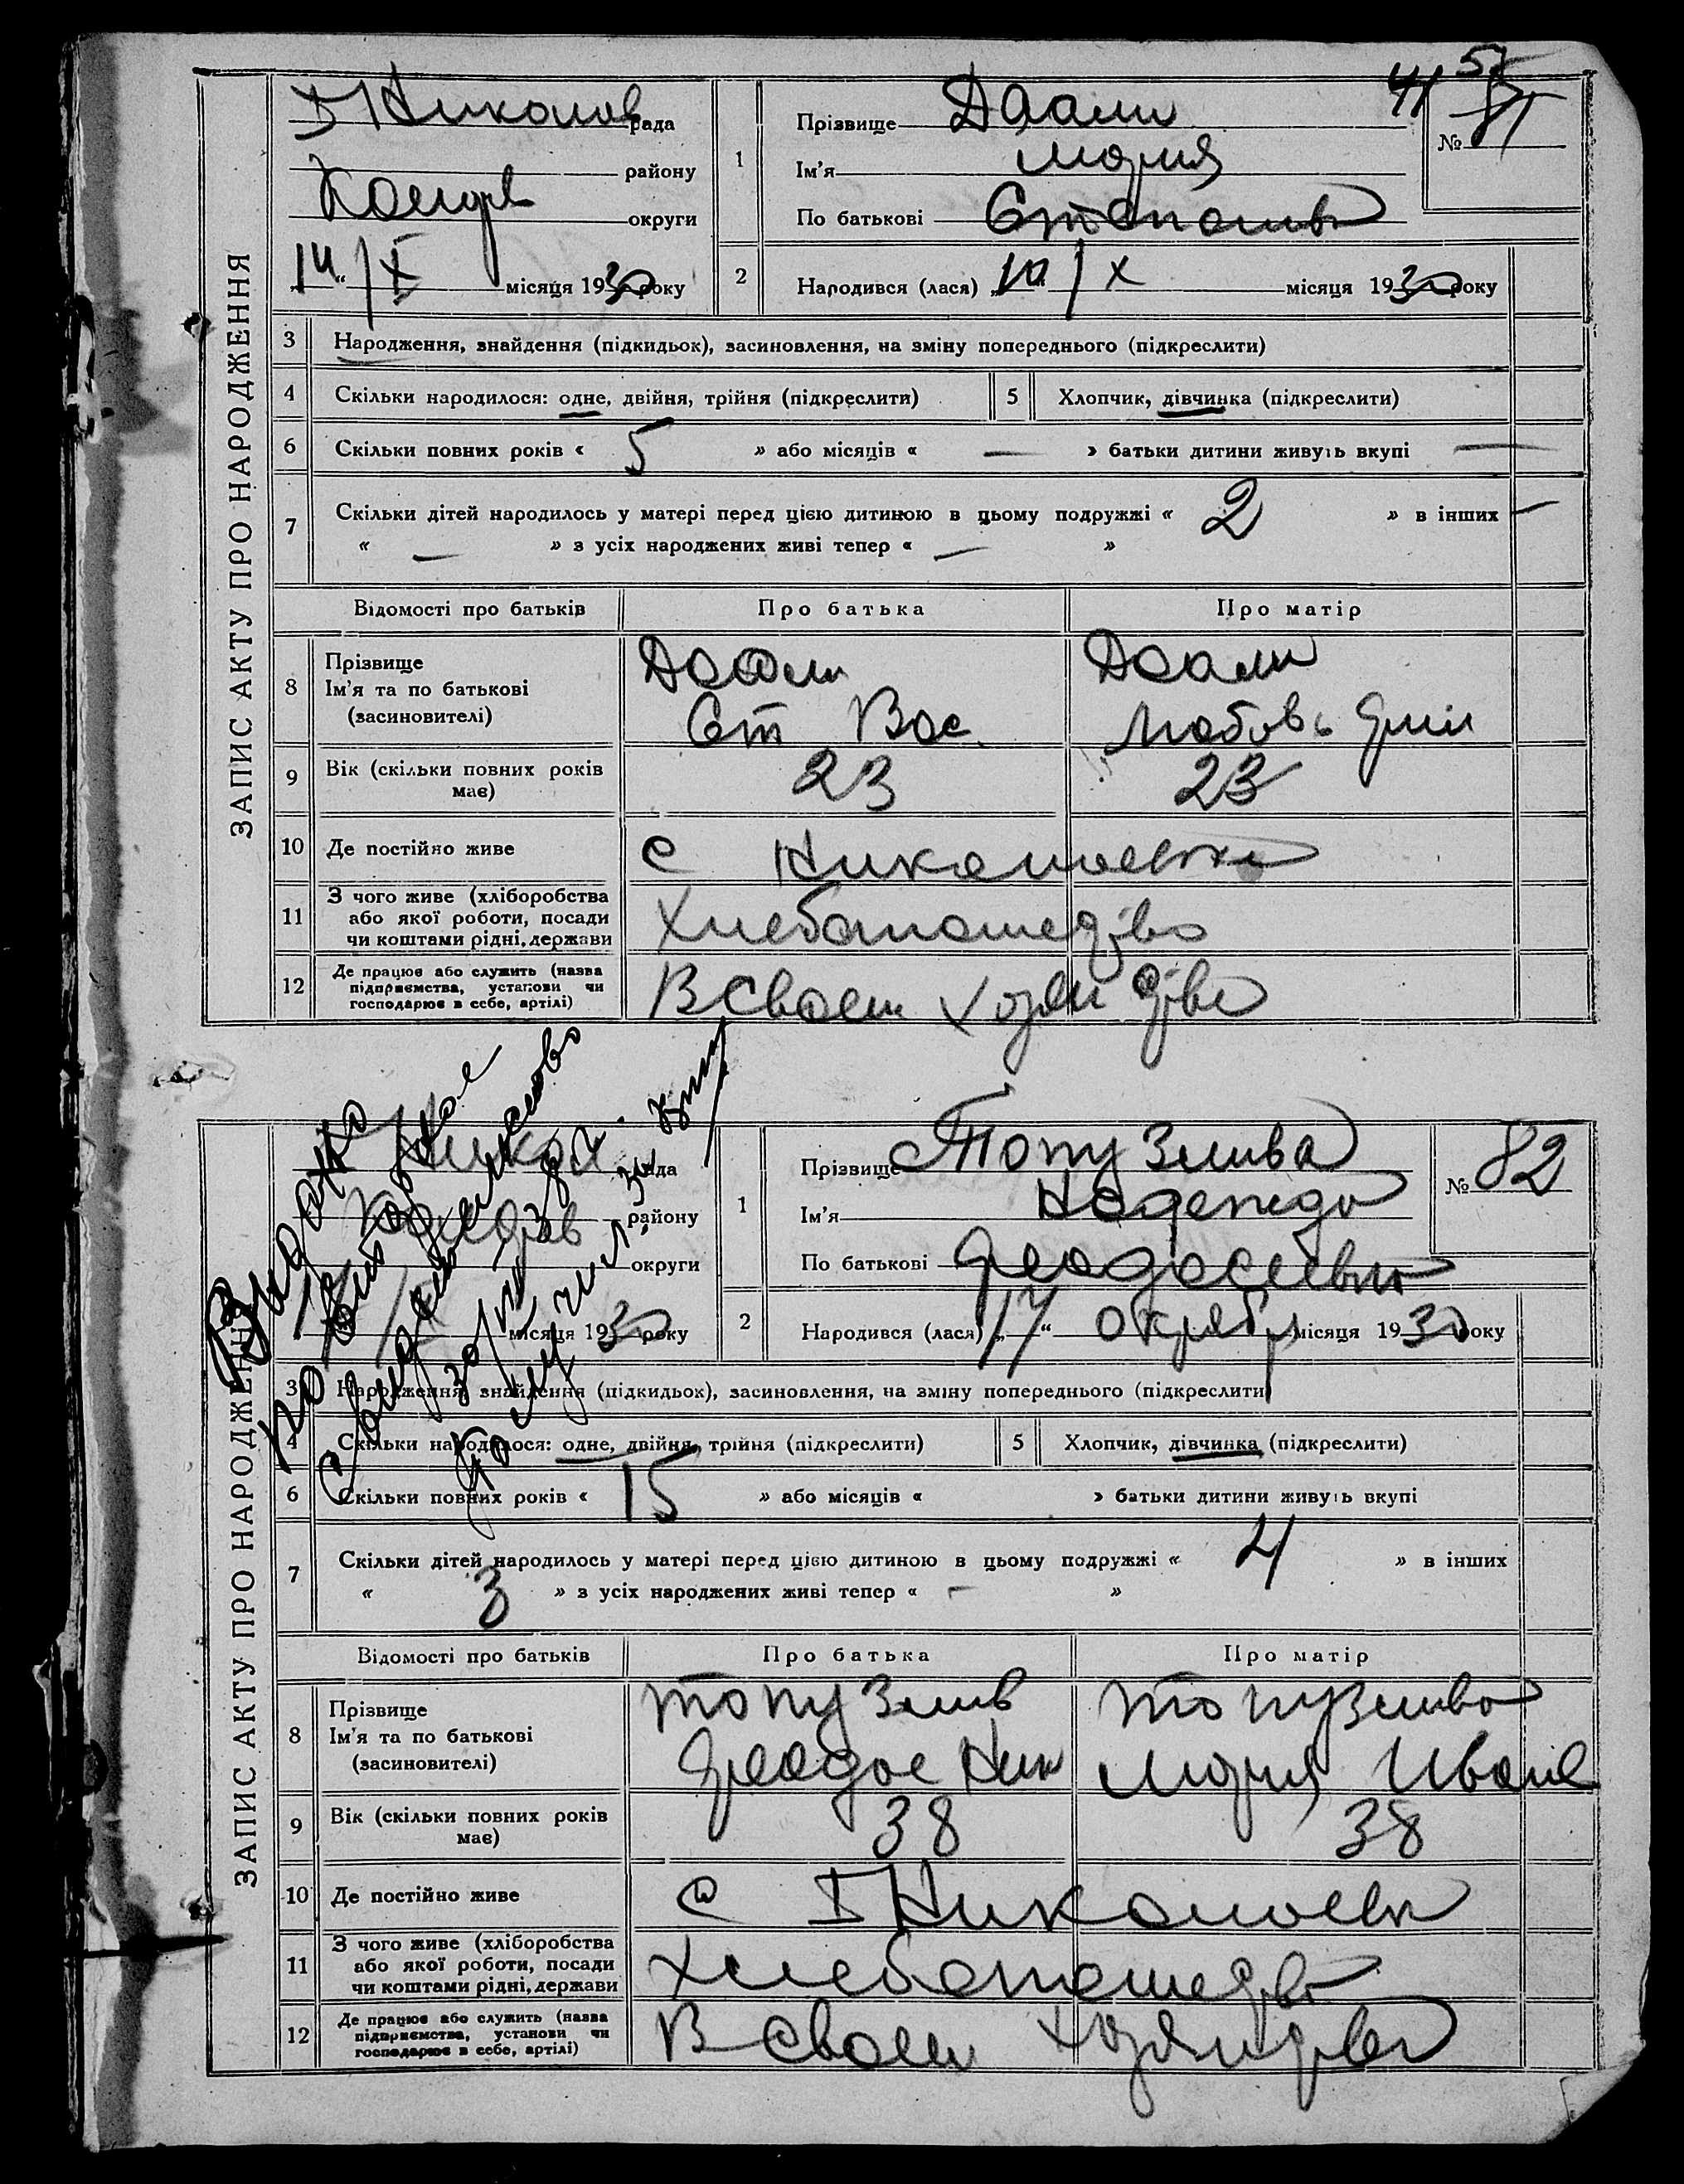 ЗАПИС АКТУ ПРО НАРОДЖЕННЯ
I Николов рада
району
округи
14 / X місяця 1930 року
1
Прізвище Даали
Ім'я Мария
По батькові Степановн
41 57
№ 81
2 Народився (лася) „10“ / X місяця 1930 року
3 Народження, знайдення (підкидьок), засиновлення, на зміну попереднього (підкреслити)
4 Скільки народилося: одне, двійня, трійня (підкреслити)
5 Хлопчик, дівчинка (підкреслити)
6 Скільки повних років « 5 » або місяців « — » батьки дитини живуть вкупі —
7 Скільки дітей народилось у матері перед цією дитиною в цьому подружжі « 2 » в інших —
« — » з усіх народжених живі тепер « — »
Відомості про батьків Про батька Про матір
8 Прізвище Даали Даали
Ім'я та по батькові
(засиновителі) Ст Вас Любовь
9 Вік (скільки повних років має) 23 23
10 Де постійно живе с Николаевке
11 З чого живе (хліборобства
або якої роботи, посади
чи коштами рідні, держави Хлебопашедство
12 Де працює або служить (назва
підприємства, установи чи
господарює в себе, артілі) В своем хозяйстве
ЗАПИС АКТУ ПРО НАРОДЖЕННЯ
Никол рада
району
округи
17 / X місяця 1930 року
Выдано
повторное
1
Прізвище Топузлива
Ім'я Надежда
По батькові Феодосеевна
№ 82
2 Народився (лася) „17“ октябр місяця 1930 року
3 Народження, знайдення (підкидьок), засиновлення, на зміну попереднього (підкреслити)
4 Скільки народилося: одне, двійня, трійня (підкреслити)
5 Хлопчик, дівчинка (підкреслити)
6 Скільки повних років « 15 » або місяців « » батьки дитини живуть вкупі
7 Скільки дітей народилось у матері перед цією дитиною в цьому подружжі « 4 » в інших
« 3 » з усіх народжених живі тепер « - »
Відомості про батьків Про батька Про матір
8 Прізвище Топузлив Топузлива
Ім'я та по батькові
(засиновителі) Феодос Ник Мария Иване
9 Вік (скільки повних років має) 38 38
10 Де постійно живе с I Николаевк
11 З чого живе (хліборобства
або якої роботи, посади
чи коштами рідні, держави Хлебопашедство
12 Де працює або служить (назва
підприємства, установи чи
господарює в себе, артілі) В своем хозяйстве